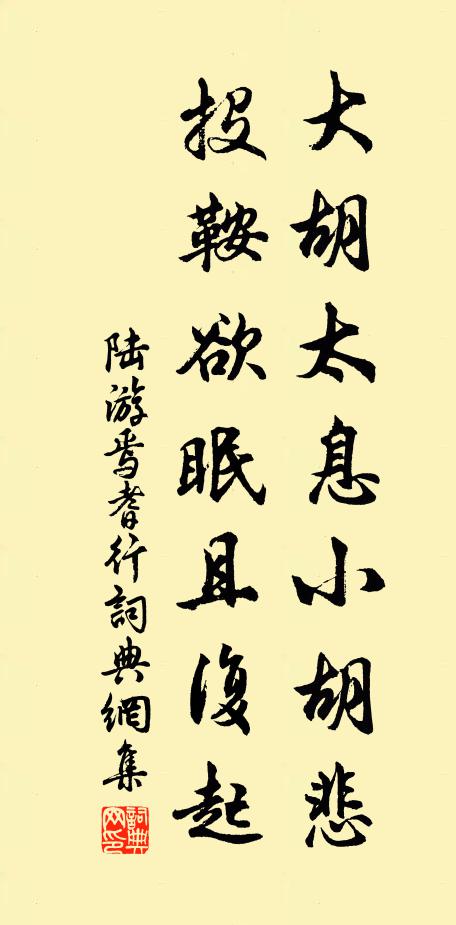 大胡太息小胡悲
投鞍欲眠且復起
陆游焉耆行詞典網集
詞典
网印